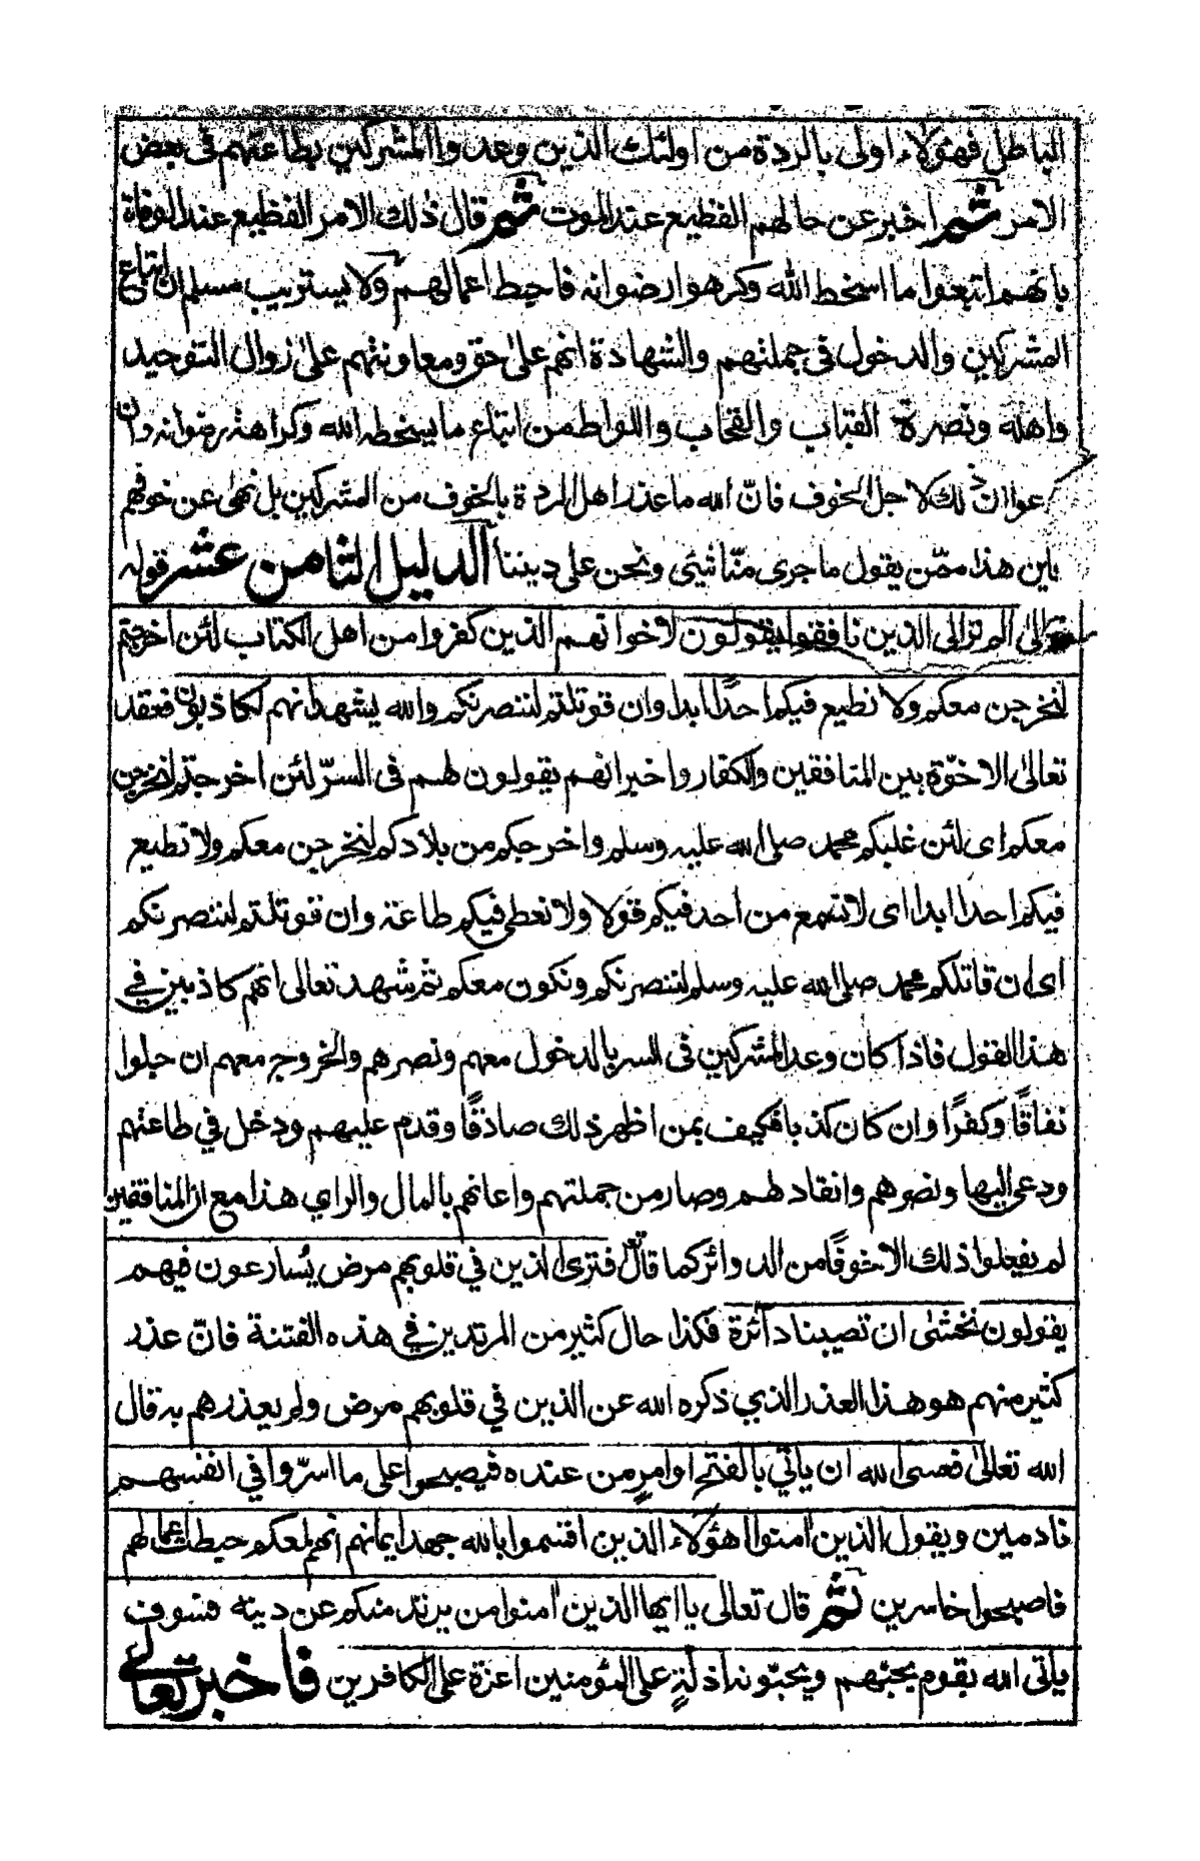 الباطل فهؤلاء اولى بالردة من اولئك الذين وعدوا المشركين بطاعتهم في بعض
الامر ثم اخبر عن حالهم الفظيع عند الموت ثم قال ذلك الامر الفظيع عند الوفاة
بانهم اتبعوا ما اسخط الله وكرهوا رضوانه فاحبط اعمالهم ولا يستريب مسلم ان اتباع
المشركين والدخول في جملتهم والشهادة انهم على حق ومعاونتهم على زوال التوحيد
واهله ونصرة القباب والقحاب واللواط من اتباع ما يسخطه الله وكراهة رضوانه وان
عوا ان ذلك لاجل الخوف فانّ الله ما عذر اهل الردة بالخوف من المشركين بل نهى عن خوفهم
باين هذا ممّن يقول ما جرى منّا شيئ ونحن على ديننا الدليل الثامن عشر قوله
تعالى الم تر الى الذين نافقوا يقولون لاخوانهم الذين كفروا من اهل الكتاب لئن اخرجتم
لنخرجن معكم ولا نطيع فيكم احدًا ابدا وان قوتلتم لننصرنكم والله يشهد انهم لكاذبون فعقد
تعالى الاخوّة بين المنافقين والكفار واخبر انهم يقولون لهم في السرّ لئن اخرجتم لنخرجن
معكم اى لئن غلبكم محمد صلى الله عليه وسلم واخرجكم من بلادكم لنخرجن معكم ولا نطيع
فيكم احدا ابدا اى لا نسمع من احد فيكم قولا ولا نعطي فيكم طاعة وان قوتلتم لننصرنكم
اى ان قاتلكم محمد صلى الله عليه وسلم لننصرنكم ونكون معكم ثم شهد تعالى انهم كاذبين في
هذا القول فاذا كان وعد المشركين فى السر بالدخول معهم ونصرهم والخروج معهم ان جلوا
نفاقًا وكفرًا وان كان كذبا فكيف بمن اظهر ذلك صادقًا وقدم عليهم ودخل في طاعتهم
ودعى اليها ونصرهم وانقاد لهم وصار من جملتهم واعانهم بالمال والراي هذا مع ان المنافقين
لم يفعلوا ذلك الا خوفًا من الدوائر كما قال تع فترى الذين في قلوبهم مرض يُسارعون فيهم
يقولون نخشى ان تصيبنا دآئرة فكذا حال كثير من المرتدين في هذه الفتنة فانّ عذر
كثير منهم هو هذا العذر الذي ذكره الله عن الذين في قلوبهم مرض ولم يعذرهم به قال
الله تعالى فعسى الله ان ياتي بالفتح او امرٍ من عنده فيصبحوا على ما اسرّوا في انفسهم
نادمين ويقول الذين آمنوا اهؤلاء الذين اقسموا بالله جهد ايمانهم انهم لمعكم حبطت اعمالهم
فاصبحوا خاسرين ثم قال تعالى يا ايها الذين آمنوا من يرتد منكم عن دينه فسوف
ياتى الله بقوم يحبّهم ويحبّونه اذلةٍ على المؤمنين اعزة على الكافرين فاخبر تعالى